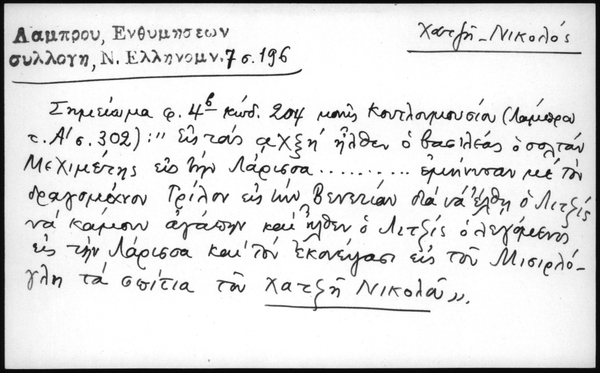 Λαμπρου, Ενθυμησεων
Χατζῆ-Νικολός
συλλογη, Ν. Ελληνομν. 7 σ. 196
Σημείωμα φ. 4β κώδ. 204 μονῆς Κουτλουμουσίου (Λάμπρου
τ. Α' σ. 302): "εἰς τὰς αχξη' ἦλθεν ὁ βασιλεάς ὁ σολτάν
Μεχιμέτης εἰς τὴν Λάρισσα .......... ἐμήνυσαν μὲ τὸν
δραγομάνον Γρίλον εἰς τὴν Βενετίαν διὰ νὰ ἔλθῃ ὁ Λιτζίς
νὰ κάμουν ἀγάπην καὶ ἦλθεν ὁ Λιτζίς ὁ λεγόμενος
εἰς τὴν Λάρισσα καὶ τὸν ἐκονέψασι εἰς τοῦ Μισιρλό-
γλη τὰ σπίτια τοῦ Χατζῆ Νικολοῦ».